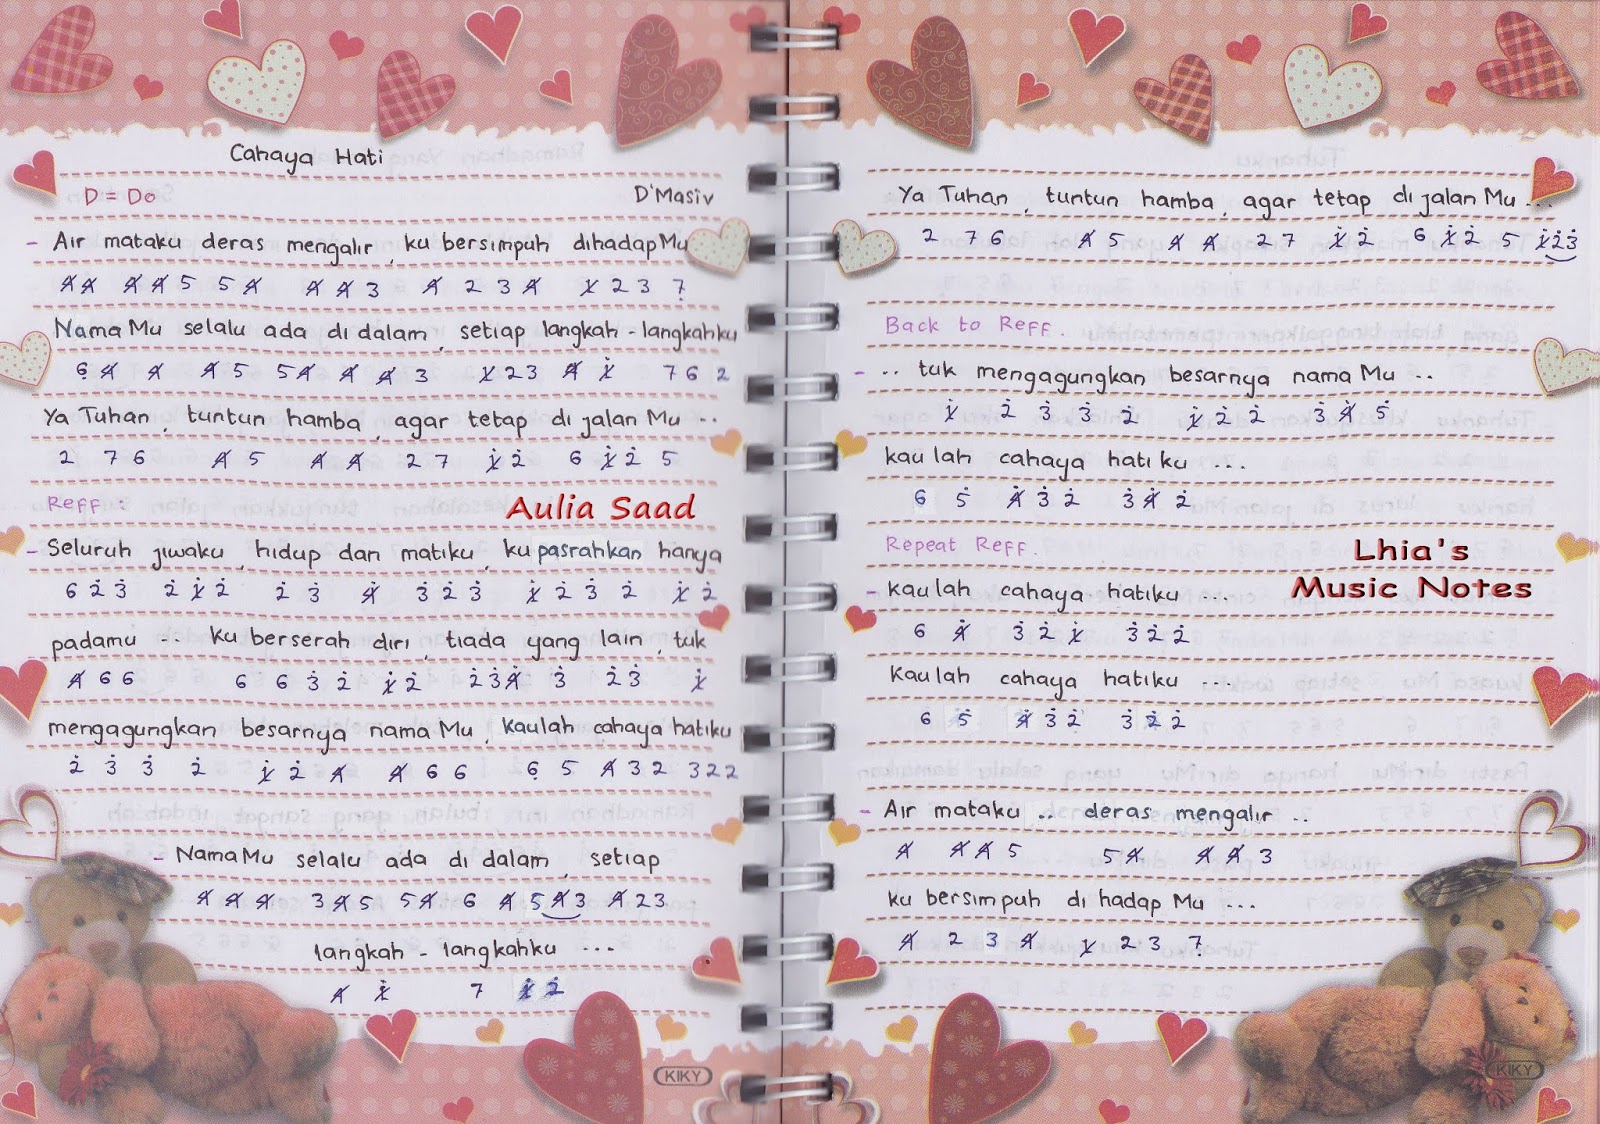 Cahaya Hati
D = Do
D'Masiv
- Air mataku deras mengalir, ku bersimpuh dihadap Mu
4̸4̸ 4̸4̸5 54̸ 4̸4̸3 4̸ 2 3 4̸ 1̸ 2 3 7̣
Nama Mu selalu ada di dalam, setiap langkah - langkahku
6̣ 4̸ 4̸ 4̸ 5 5 4̸ 4̸ 4̸ 3 1̸ 2 3 4̸ 1̸̇ 7 6 2
Ya Tuhan, tuntun hamba, agar tetap di jalan Mu ..
2 7 6 4̸ 5 4̸ 4̸ 2 7 1̸̇ 2̇ 6 1̸̇ 2̇ 5
Reff :
Aulia Saad
- Seluruh jiwaku, hidup dan matiku, ku pasrahkan hanya
6 2̇ 3̇ 2̇ 1̸̇ 2̇ 2̇ 3̇ 4̸̇ 3̇ 2̇ 3̇ 1̸̇ 2̇ 3̇ 2̇ 1̸̇ 2̇
padamu .. ku berserah diri, tiada yang lain, tuk
4̸ 6 6 6 6 3̇ 2̇ 1̸̇ 2̇ 2̇ 3̇ 4̸̇ 3̇ 2̇ 3̇ 1̸̇
mengagungkan besarnya nama Mu, kaulah cahaya hatiku
2̇ 3̇ 3̇ 2̇ 1̸̇ 2̇ 4̸ 4̸ 6 6 6̣ 5 4̸ 3 2 3 2 2
- Nama Mu selalu ada di dalam, setiap
4̸ 4̸ 4̸ 3 4̸ 5 5 4̸ 6 4̸ 5 4̸ 3 4̸ 2 3
langkah - langkahku ...
4̸ 1̸̇ 7 1̸̇ 2̇
KIKY
Ya Tuhan, tuntun hamba, agar tetap di jalan Mu ...
2 7 6 4̸ 5 4̸ 4̸ 2 7 1̸̇ 2̇ 6 1̸̇ 2̇ 5 1̸̇ 2̇ 3̇
Back to Reff.
- .. tuk mengagungkan besarnya nama Mu ..
1̸̇ 2̇ 3̇ 3̇ 2̇ 1̸̇ 2̇ 2̇ 3̇ 4̸̇ 5̇
kau lah cahaya hati ku ...
6 5̇ 4̸̇ 3̇ 2̇ 3̇ 4̸̇ 2̇
Repeat Reff.
Lhia's
Music Notes
- kaulah cahaya hatiku ...
6 4̸̇ 3̇ 2̇ 1̸̇ 3̇ 2̇ 2̇
Kaulah cahaya hatiku ...
6 5̇ 4̸̇ 3̇ 2̇ 3̇ 2̇ 2̇
- Air mataku .. deras mengalir ..
4̸ 4̸ 4̸ 5 5 4̸ 4̸ 4̸ 3
ku bersimpuh di hadap Mu ...
4̸ 2 3 4̸ 1̸ 2 3 7̣
KIKY